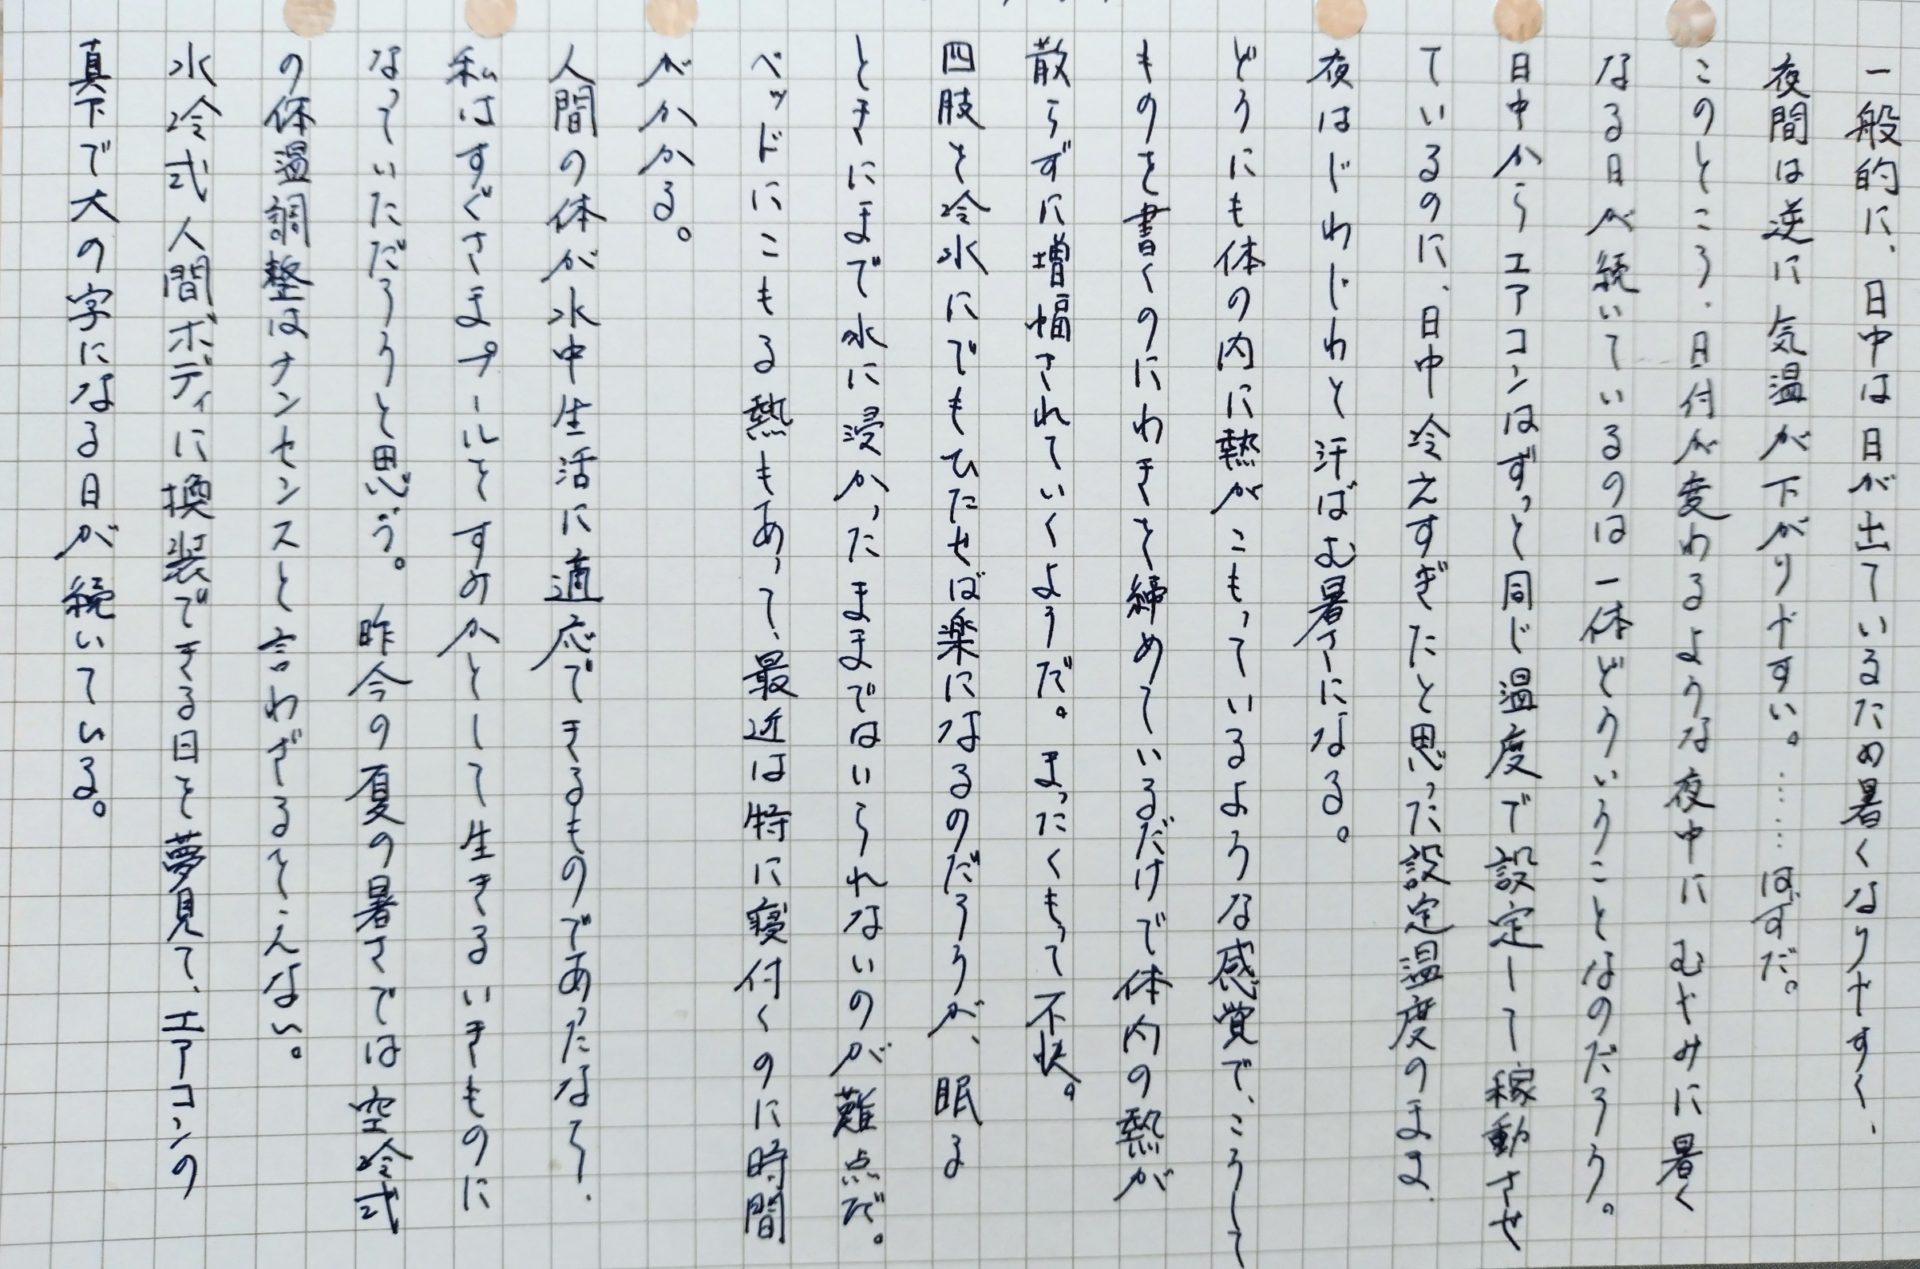 一般的に、日中は日が出ているため暑くなりやすく、
夜間は逆に気温が下がりやすい。……はずだ。
このところ、日付が変わるような夜中にむやみに暑く
なる日が続いているのは一体どういうことなのだろう。
日中からエアコンはずっと同じ温度で設定して稼動させ
ているのに、日中冷えすぎたと思った設定温度のまま、
夜はじわじわじわと汗ばむ暑さになる。
どうにも体の内に熱がこもっているような感覚で、こうして
ものを書くのにわきを締めているだけで体内の熱が
散らずに増幅されていくようだ。まったくもって不快。
四肢を冷水にでもひたせば楽になるのだろうが、眠る
ときにまで水に浸かったままではいられないのが難点だ。
ベッドにこもる熱もあって、最近は特に寝付くのに時間
がかかる。
人間の体が水中生活に適応できるものであったなら、
私はすぐさまプールをすみかとして生きるいきものに
なっていただろうと思う。昨今の夏の暑さでは空冷式
の体温調整はナンセンスと言わざるをえない。
水冷式人間ボディに換装できる日を夢見て、エアコンの
真下で大の字になる日が続いている。